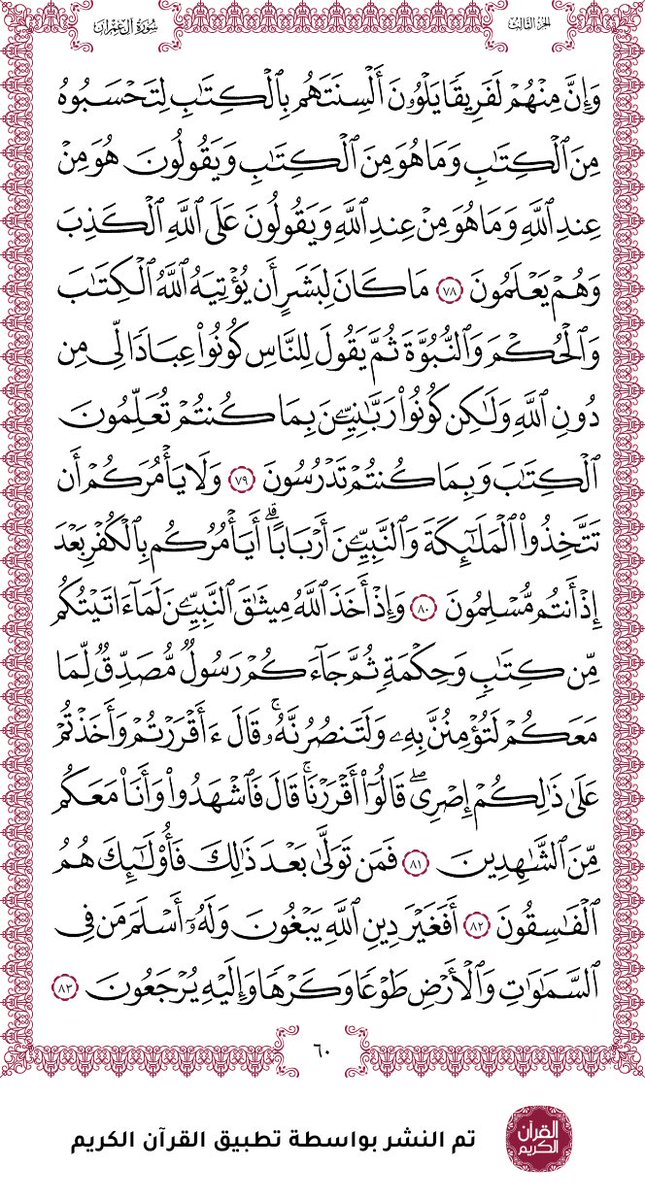 الجزء الثالث
سورة آل عمران
وَإِنَّ مِنْهُمْ لَفَرِيقًا يَلْوُۥنَ أَلْسِنَتَهُم بِالْكِتَٰبِ لِتَحْسَبُوهُ
مِنَ الْكِتَٰبِ وَمَا هُوَ مِنَ الْكِتَٰبِ وَيَقُولُونَ هُوَ مِنْ
عِندِ اللَّهِ وَمَا هُوَ مِنْ عِندِ اللَّهِ وَيَقُولُونَ عَلَى اللَّهِ الْكَذِبَ
وَهُمْ يَعْلَمُونَ ٧٨ مَا كَانَ لِبَشَرٍ أَن يُؤْتِيَهُ اللَّهُ الْكِتَٰبَ
وَالْحُكْمَ وَالنُّبُوَّةَ ثُمَّ يَقُولَ لِلنَّاسِ كُونُوا۟ عِبَادًا لِّى مِن
دُونِ اللَّهِ وَلَٰكِن كُونُوا۟ رَبَّٰنِيِّۦنَ بِمَا كُنتُمْ تُعَلِّمُونَ
الْكِتَٰبَ وَبِمَا كُنتُمْ تَدْرُسُونَ ٧٩ وَلَا يَأْمُرَكُمْ أَن
تَتَّخِذُوا۟ الْمَلَٰٓئِكَةَ وَالنَّبِيِّۦنَ أَرْبَابًا ۗ أَيَأْمُرُكُم بِالْكُفْرِ بَعْدَ
إِذْ أَنتُم مُّسْلِمُونَ ٨٠ وَإِذْ أَخَذَ اللَّهُ مِيثَٰقَ النَّبِيِّۦنَ لَمَآ ءَاتَيْتُكُم
مِّن كِتَٰبٍ وَحِكْمَةٍ ثُمَّ جَآءَكُمْ رَسُولٌ مُّصَدِّقٌ لِّمَا
مَعَكُمْ لَتُؤْمِنُنَّ بِهِۦ وَلَتَنصُرُنَّهُۥ ۚ قَالَ ءَأَقْرَرْتُمْ وَأَخَذْتُمْ
عَلَىٰ ذَٰلِكُمْ إِصْرِى ۖ قَالُوٓا۟ أَقْرَرْنَا ۚ قَالَ فَاشْهَدُوا۟ وَأَنَا۠ مَعَكُم
مِّنَ الشَّٰهِدِينَ ٨١ فَمَن تَوَلَّىٰ بَعْدَ ذَٰلِكَ فَأُو۟لَٰٓئِكَ هُمُ
الْفَٰسِقُونَ ٨٢ أَفَغَيْرَ دِينِ اللَّهِ يَبْغُونَ وَلَهُۥٓ أَسْلَمَ مَن فِى
السَّمَٰوَٰتِ وَالْأَرْضِ طَوْعًا وَكَرْهًا وَإِلَيْهِ يُرْجَعُونَ ٨٣
٦٠
تم النشر بواسطة تطبيق القرآن الكريم
القرآن
الكريم